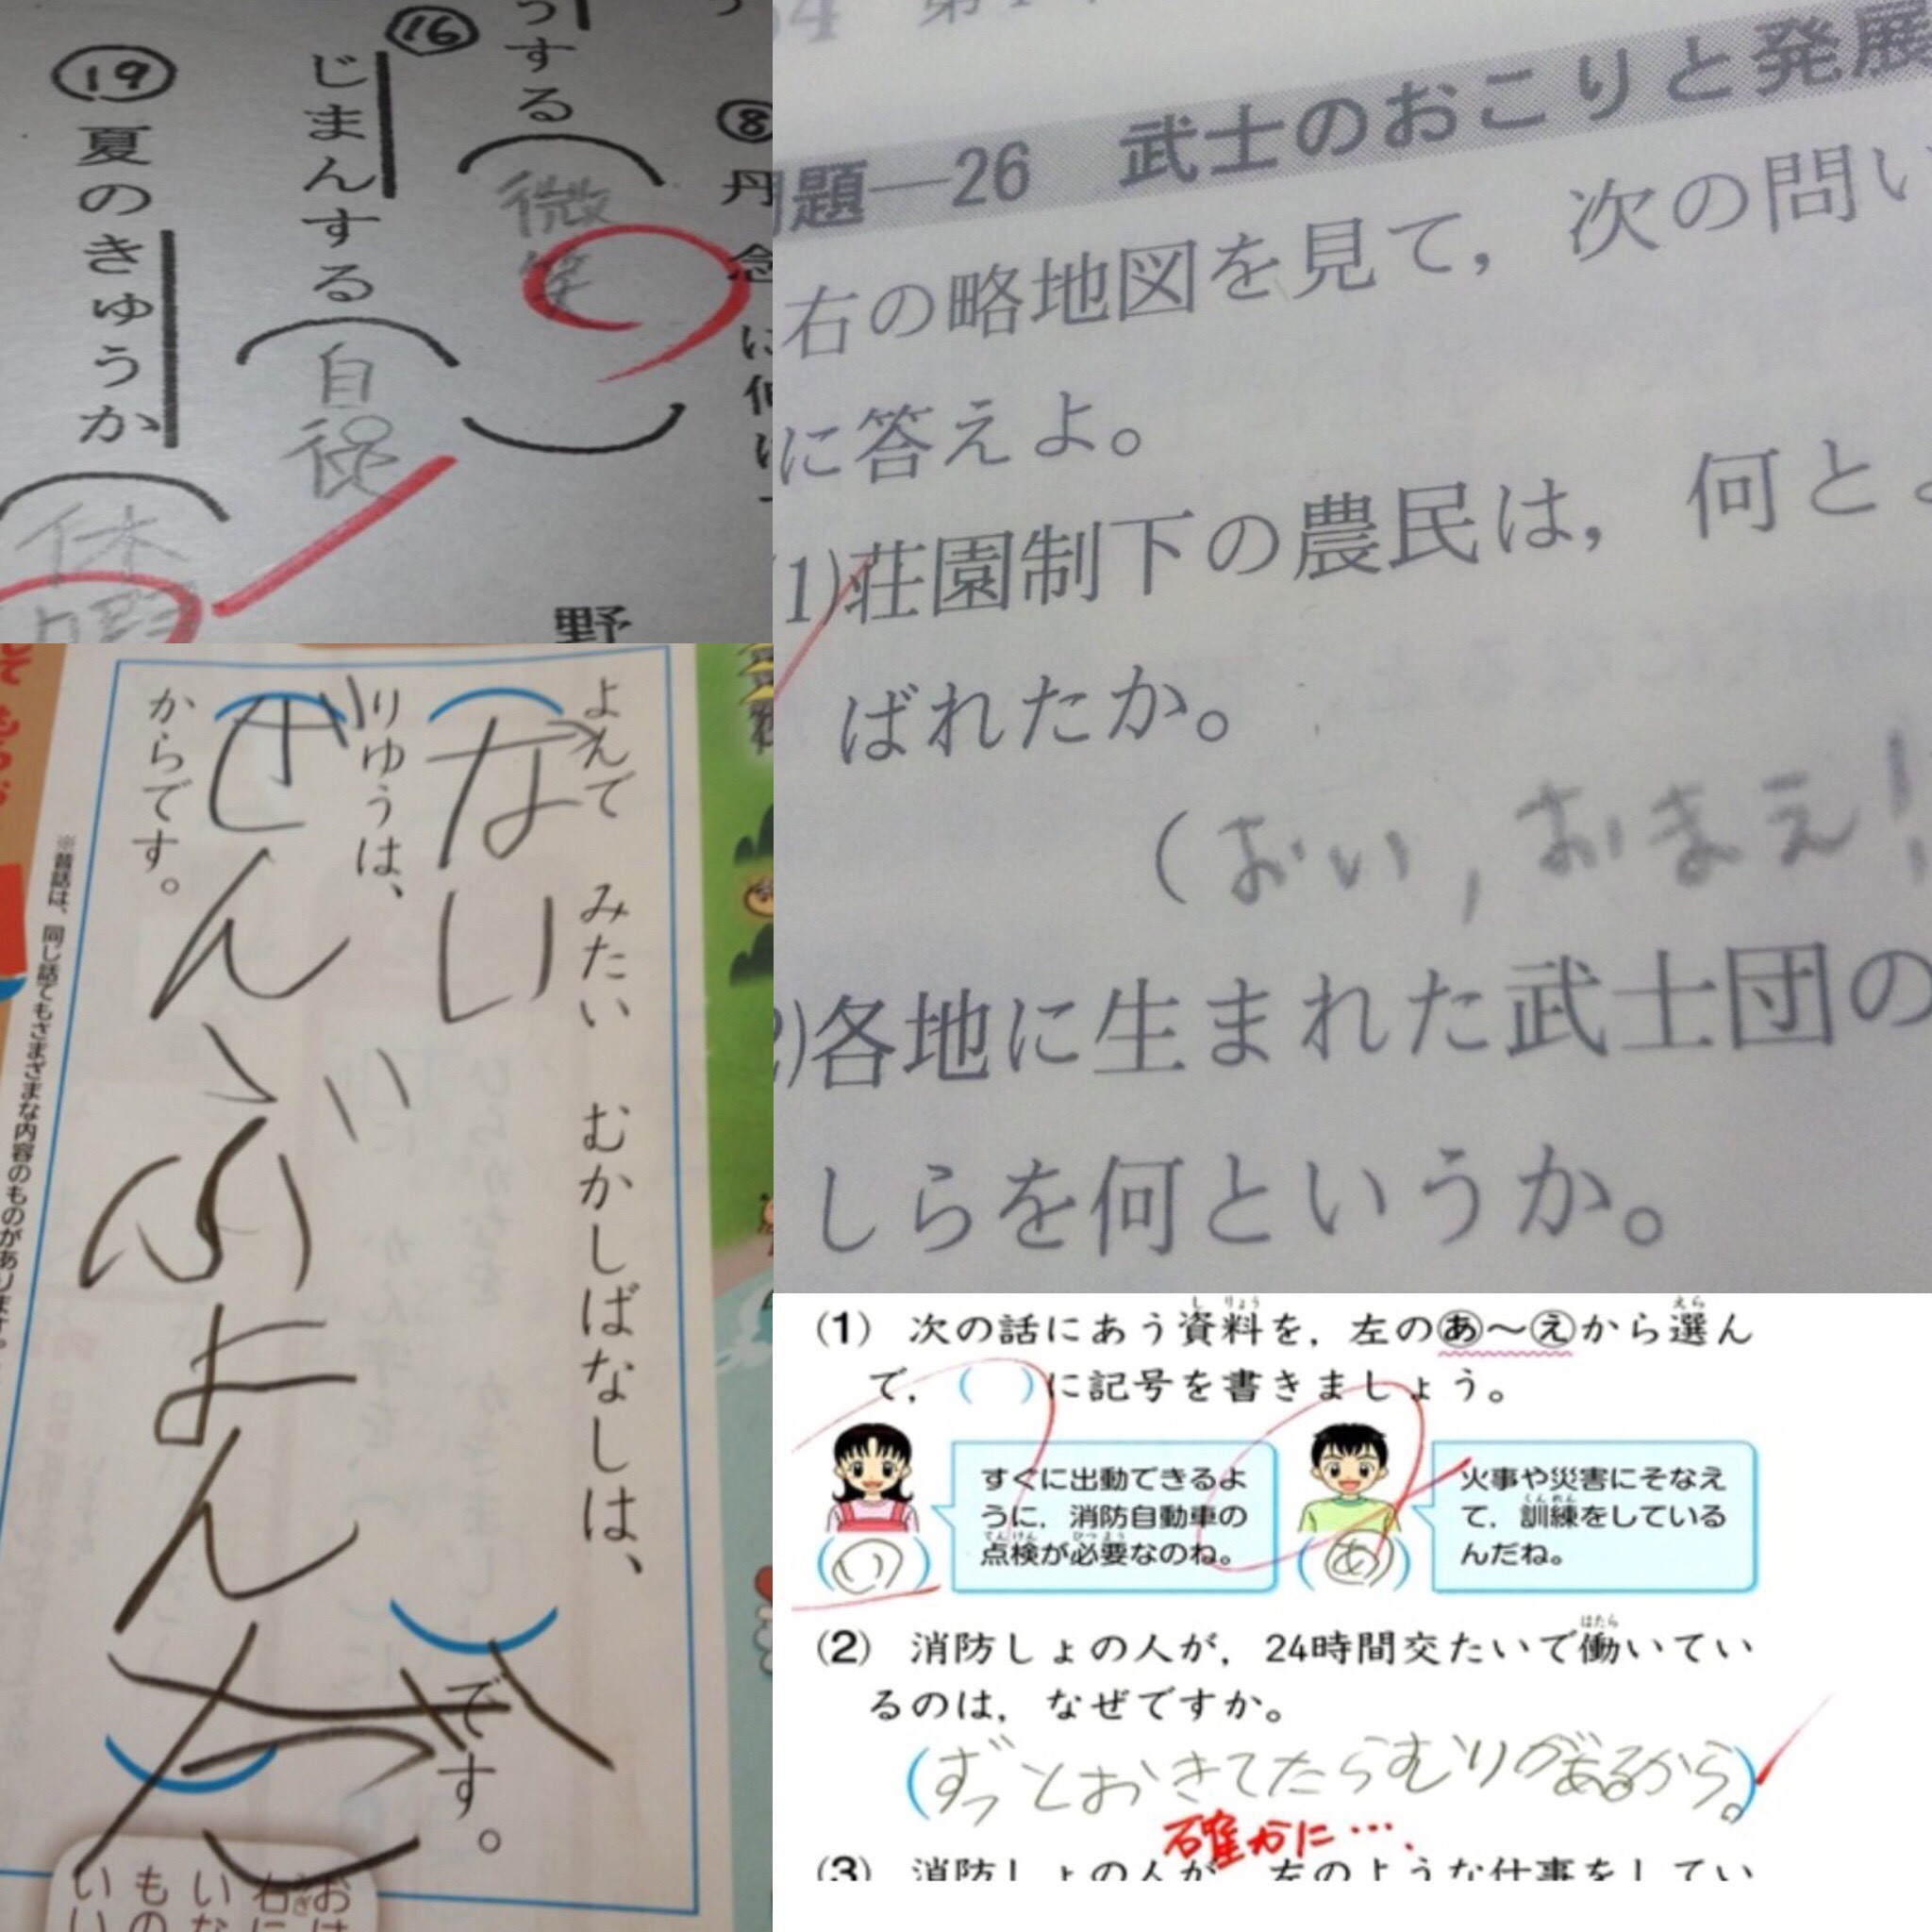 ⑧丹念に
うする（微笑）
⑯じまんする（自
⑲夏のきゅうか（休暇
野
題―26 武士のおこりと発展
右の略地図を見て，次の問い
に答えよ。
(1)荘園制下の農民は，何とよ
ばれたか。
（おい，おまえ！
(2)各地に生まれた武士団の
しらを何というか。
よんで みたい むかしばなしは、
（ない）です。
りゆうは、
（ぜんぶよんだ）
からです。
※昔話は、同じ話でもさまざまな内容のものがあります。
(1) 次の話にあう資料を，左のあ～えから選ん
し りょう えら
で，( )に記号を書きましょう。
すぐに出動できるよ
うに，消防自動車の
点検が必要なのね。
てんけん ひつよう
（い）
火事や災害にそなえ
て，訓練をしている
くんれん
んだね。
（あ）
(2) 消防しょの人が，24時間交たいで働いてい
はたら
るのは，なぜですか。
（ずっとおきてたらむりがあるから。）
確かに…．
(3) 消防しょの人が，左のような仕事をしてい